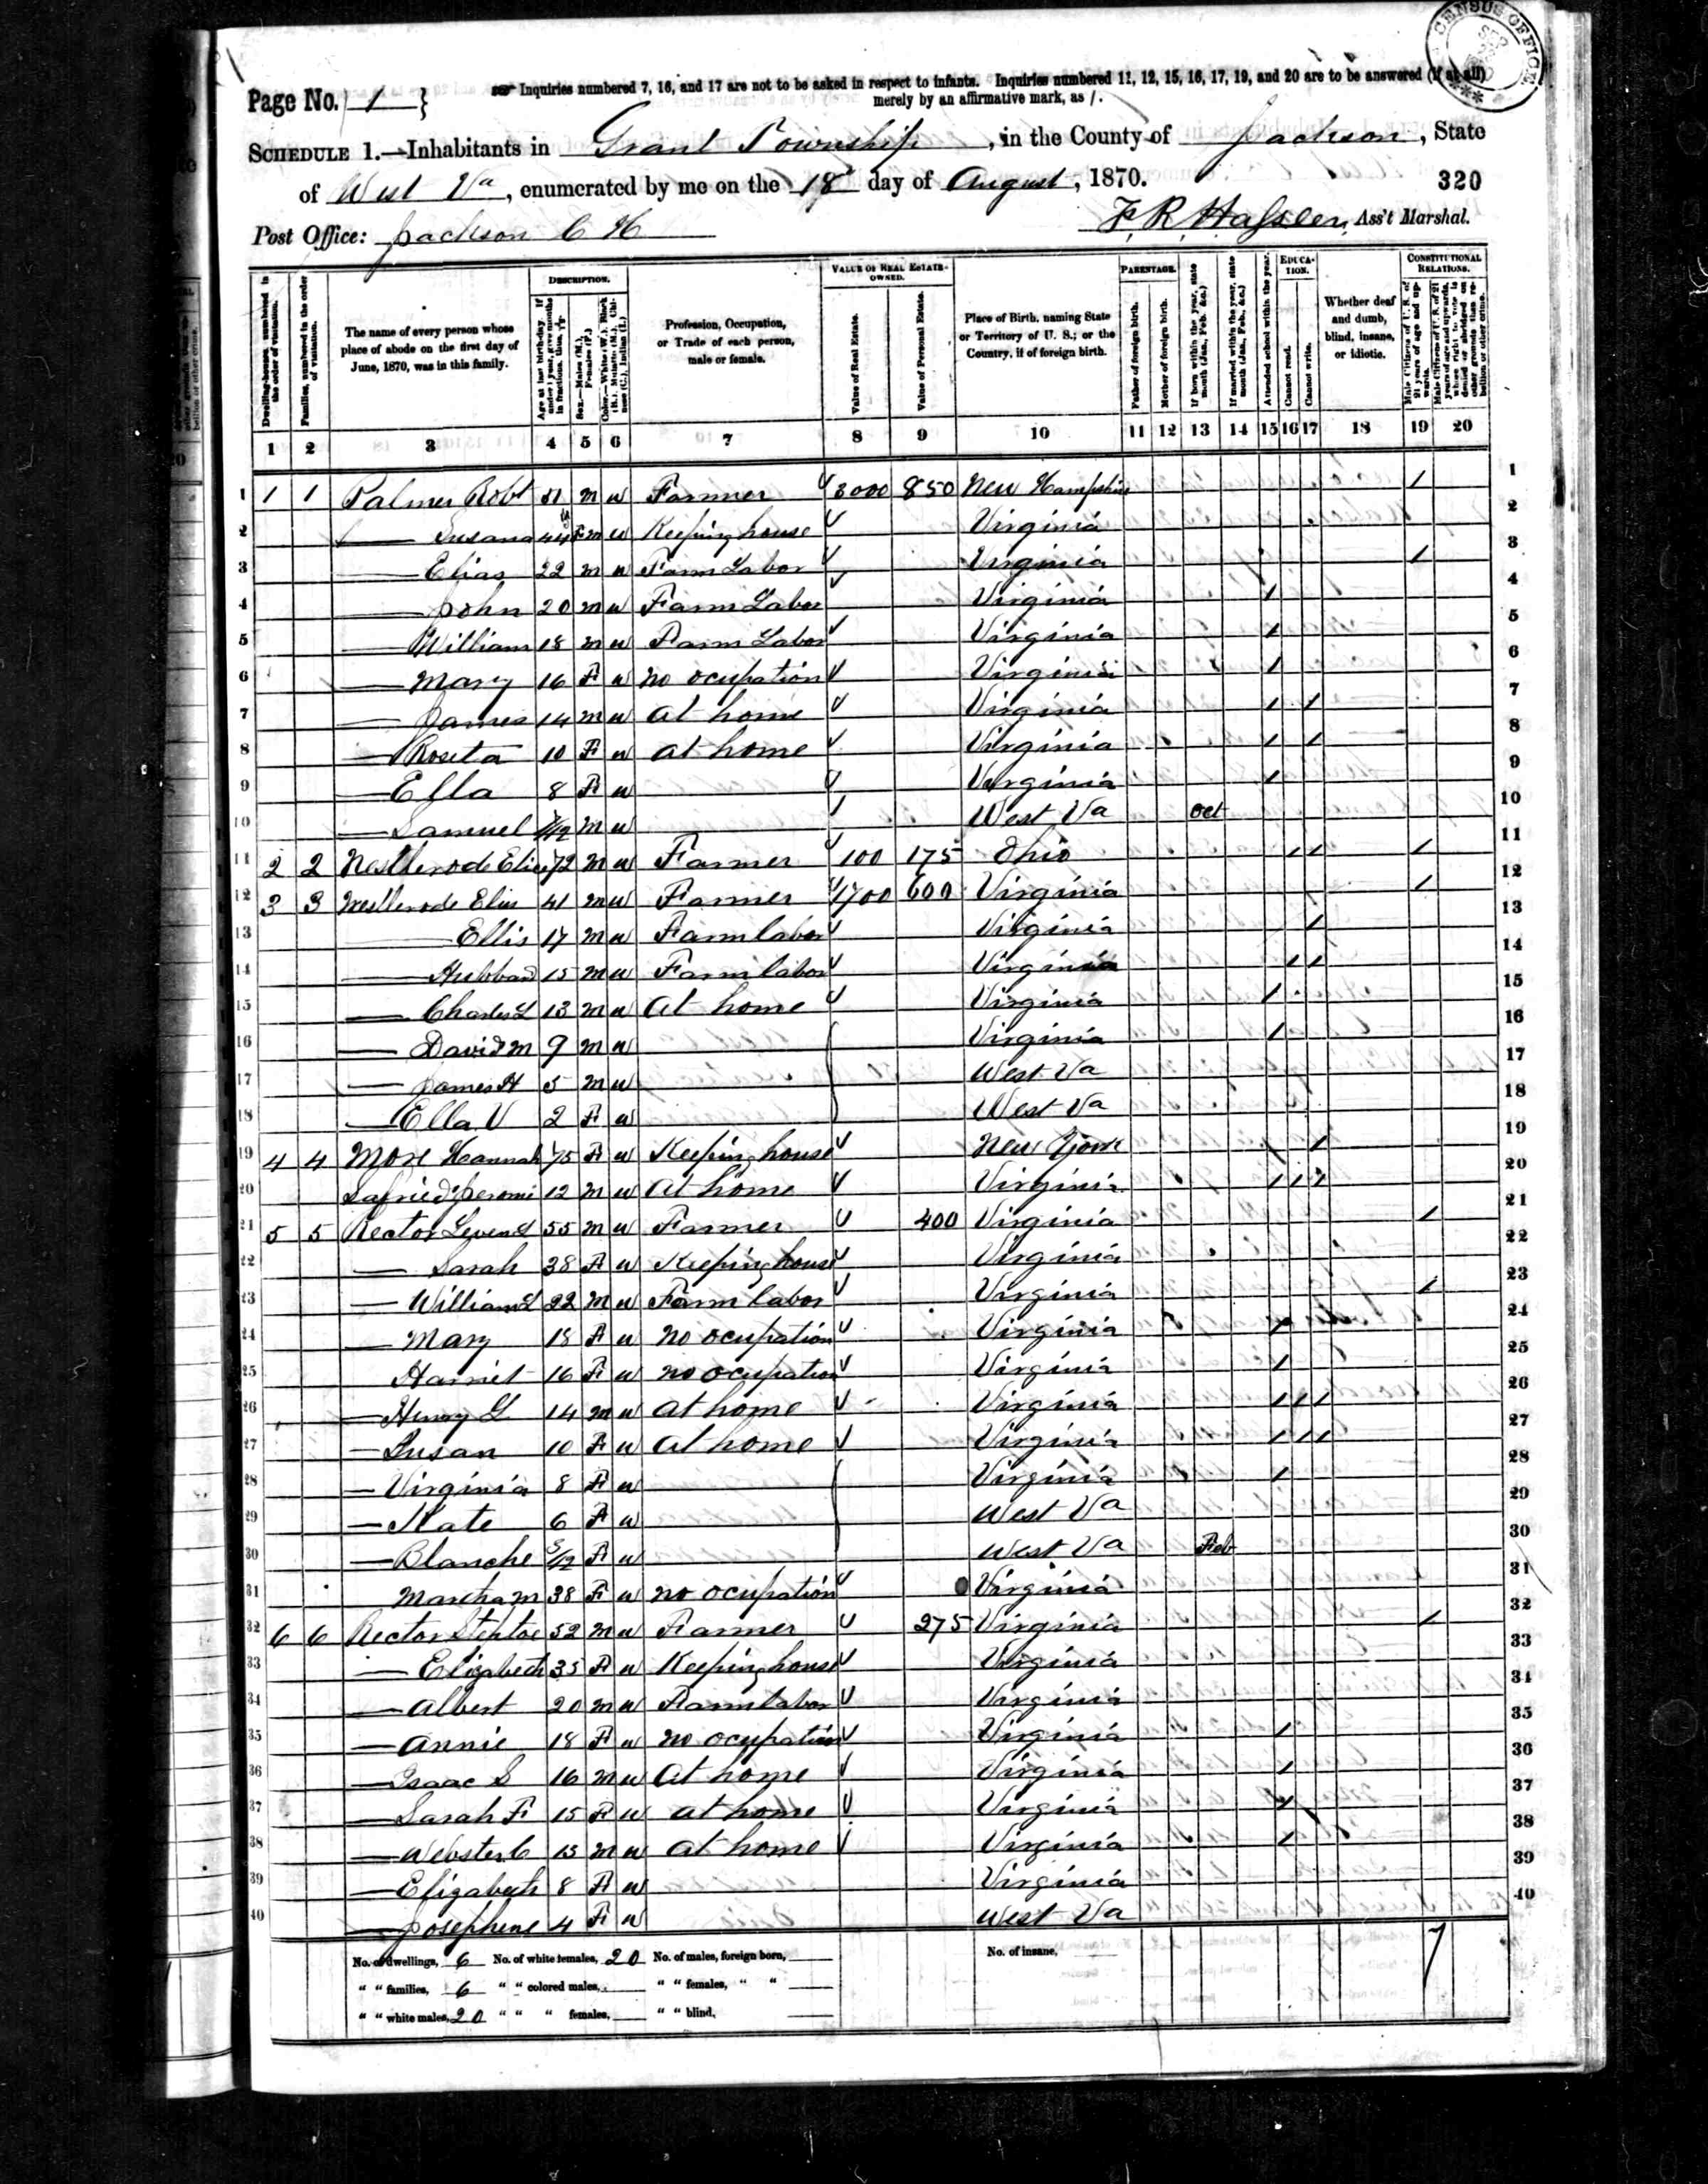 CENSUS OFFICE
Page No. 1 }
Inquiries numbered 7, 16, and 17 are not to be asked in respect to infants. Inquiries numbered 11, 12, 15, 16, 17, 19, and 20 are to be answered (if at all)
merely by an affirmative mark, as /.
SCHEDULE 1.—Inhabitants in Grant Township, in the County of Jackson, State
of West Va, enumerated by me on the 18 day of August, 1870. 320
Post Office: Jackson C H F. R. Hassler, Ass't Marshal.
DESCRIPTION. VALUE OF REAL ESTATE OWNED. PARENTAGE. EDUCATION. CONSTITUTIONAL RELATIONS.
Dwelling-houses, numbered in the order of visitation.
Families, numbered in the order of visitation.
The name of every person whose place of abode on the first day of June, 1870, was in this family.
Age at last birth-day. If under 1 year, give months in fractions, thus, 3/12.
Sex.—Males (M.), Females (F.)
Color.—White (W.), Black (B.), Mulatto (M.), Chinese (C.), Indian (I.)
Profession, Occupation, or Trade of each person, male or female.
Value of Real Estate.
Value of Personal Estate.
Place of Birth, naming State or Territory of U. S.; or the Country, if of foreign birth.
Father of foreign birth.
Mother of foreign birth.
If born within the year, state month (Jan., Feb. &c.)
If married within the year, state month (Jan., Feb., &c.)
Attended school within the year.
Cannot read.
Cannot write.
Whether deaf and dumb, blind, insane, or idiotic.
Male Citizens of U. S. of 21 years of age and upwards.
Male Citizens of U. S. of 21 years of age and upwards, whose right to vote is denied or abridged on other grounds than rebellion or other crime.
1 2 3 4 5 6 7 8 9 10 11 12 13 14 15 16 17 18 19 20
1 1 1 Palmer Robt 51 m w Farmer 3000 850 New Hampshire / 1
2 — Susana 44 F w Keeping house Virginia 2
3 — Elias 22 m w Farm Labor Virginia / 3
4 — John 20 m w Farm Labor Virginia / 4
5 — William 18 m w Farm Labor Virginia / 5
6 — Mary 16 F w no ocupation Virginia / 6
7 — James 14 m w at home Virginia / / 7
8 — Roseta 10 F w at home Virginia / / 8
9 — Effa 8 F w Virginia / 9
10 — Samuel /12 m w West Va Oct 10
11 2 2 72 m w Farmer 100 175 Ohio / / / 11
12 3 3 41 m w Farmer 1700 600 Virginia / 12
13 — Ellis 17 m w Farm labor Virginia / 13
14 — Hubbard 15 m w Farm labor Virginia / / 14
15 — Charles L 13 m w At home Virginia / 15
16 — David M 9 m w Virginia / 16
17 — James H 5 m w West Va 17
18 — Ella V 2 F w West Va 18
19 4 4 More Hannah 75 F w Keeping house New York / 19
20 12 m w at home Virginia / / / 20
21 5 5 Rector Leven L 55 m w Farmer 400 Virginia / 21
22 — Sarah 38 F w Keeping house Virginia 22
23 — William L 22 m w Farm labor Virginia / 23
24 — Mary 18 F w no ocupation Virginia / 24
25 Harriet 16 F w no ocupation Virginia / 25
26 — Henry L 14 m w at home Virginia / / / 26
27 — Susan 10 F w at home Virginia / / / 27
28 — Virginia 8 F w Virginia / 28
29 — Kate 6 F w West Va 29
30 — Blanche /12 F w West Va Feb 30
31 Martha M 38 F w no ocupation Virginia 31
32 6 6 Rector Steptoe 52 m w Farmer 275 Virginia / 32
33 — Elizabeth 35 F w Keeping house Virginia 33
34 — Albert 20 m w Farm labor Virginia 34
35 — Annie 18 F w no ocupation Virginia / 35
36 — Isaac S 16 m w At home Virginia / 36
37 — Sarah F 15 F w at home Virginia / 37
38 — Webster C 13 m w at home Virginia / 38
39 — Elizabeth 8 F w Virginia 39
40 — Josephine 4 F w West Va 40
No. of dwellings, 6 No. of white females, 20 No. of males, foreign born, No. of insane, 7
" " families, 6 " " colored males, " " females, " "
" " white males, 20 " " " females, " " blind,